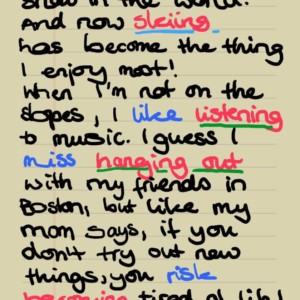 snow in the world!
And now skiing
has become the thing
I enjoy most!
When I'm not on the
slopes, I like listening
to music. I guess I
miss hanging out
with my friends in
Boston, but like my
mom says, if you
don't try out new
things, you risk
becoming tired of life!